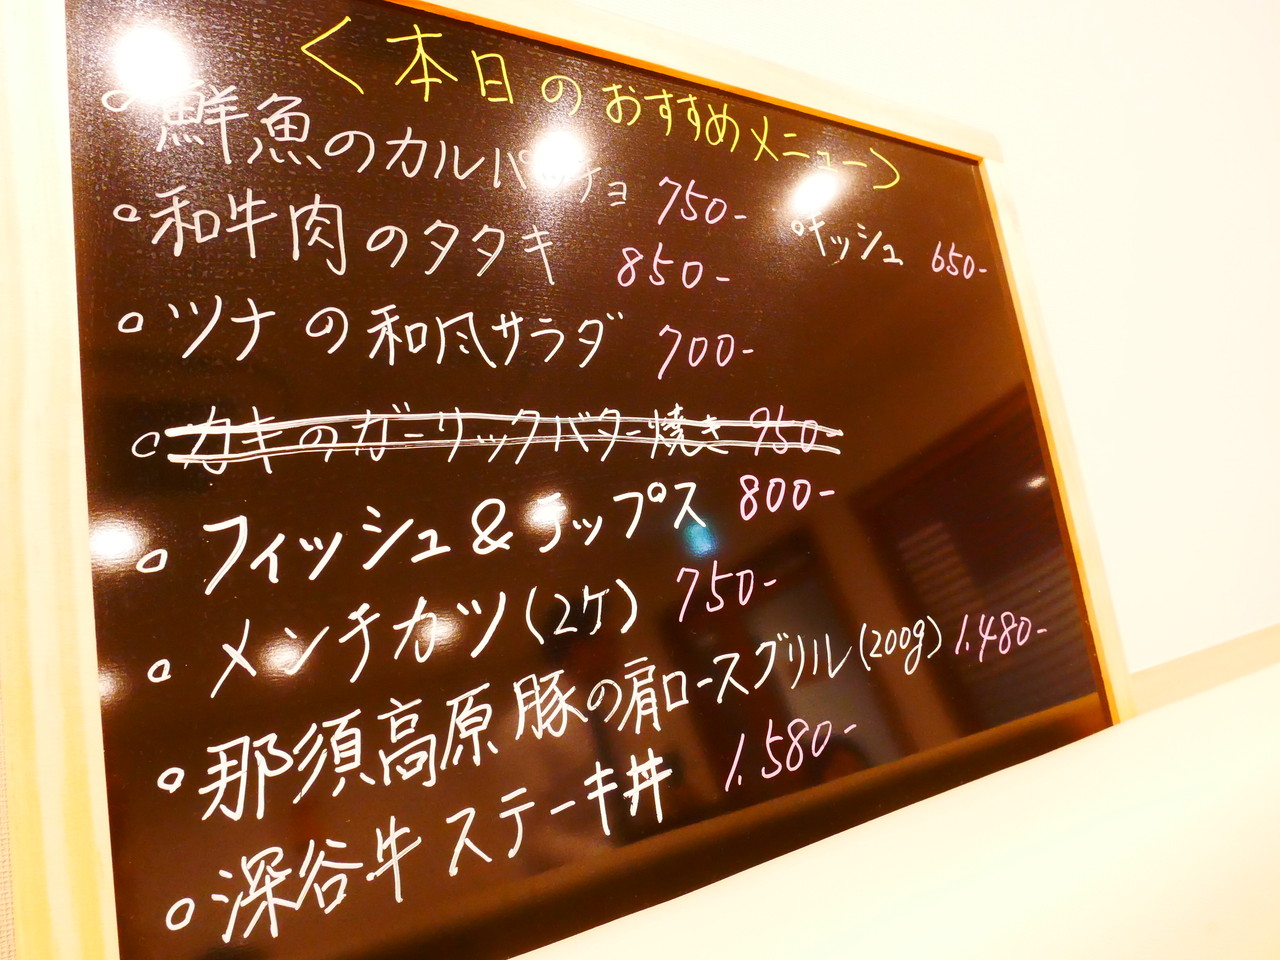 <本日のおすすめメニュー>
○鮮魚のカルパッチョ 750-
○和牛肉のタタキ 850-
○キッシュ 650-
○ツナの和風サラダ 700-
○カキのガーリックバター焼き 950-
○フィッシュ&チップス 800-
○メンチカツ(2ケ) 750-
○那須高原豚の肩ロースグリル(200g) 1.480-
○深谷牛ステーキ丼 1.580-